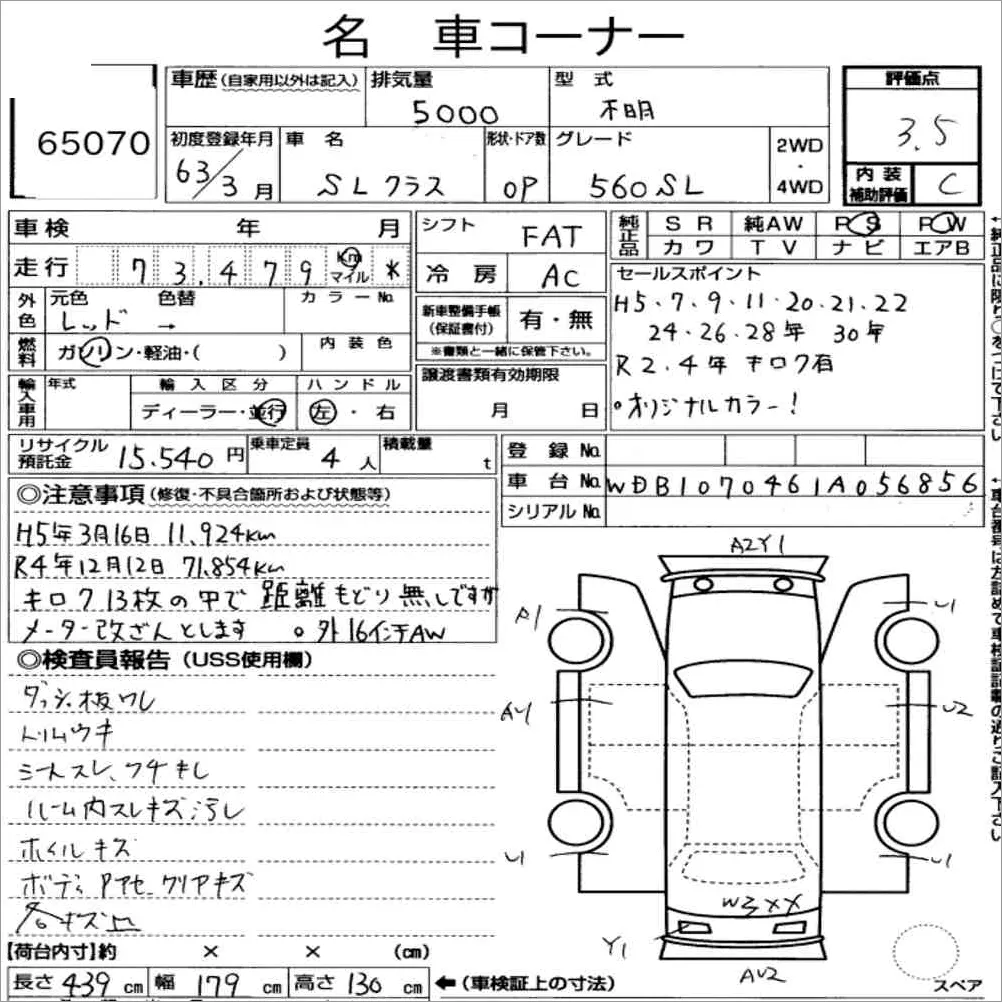 名 車コーナー
65070
車歴(自家用以外は記入) 排気量 5000 型 式 不明
評価点 3.5
初度登録年月 63/3月 車 名 SLクラス 形状・ドア数 OP グレード 560SL 2WD・4WD
内装補助評価 C
車検 年 月
走行 73,479 Km マイル *
外色 元色 レッド 色替 → カラーNo.
燃料 ガソリン・軽油・( ) 内装色
輸入車用 年式 輸入区分 ディーラー・並行 ハンドル 左・右
シフト FAT
冷房 AC
新車整備手帳(保証書付) 有・無
※書類と一緒に保管下さい。
譲渡書類有効期限
月 日
純正品 SR 純AW PS PW
カワ TV ナビ エアB
セールスポイント
H5・7・9・11・20・21・22
24・26・28年 30年
R2.4年 キロク有
○オリジナルカラー!
リサイクル預託金 15.540円 乗車定員 4人 積載量 t
登録No.
車台No. WDB1070461A056856
シリアルNo.
◎注意事項(修復・不具合箇所および状態等)
H5年3月16日 11.924km
R4年12月12日 71.854km
キロク13枚の中で 距離もどり無しですが
メーター改ざんとします ○外16インチAW
◎検査員報告(USS使用欄)
ダッシュ板ワレ
トリムウキ
シートスレ、ワチキレ
ルーム内スレキズ汚レ
ホイルキズ
ボディPアセ クリアキズ
各キズ凹
【荷台内寸】約 × × (cm)
長さ 439 cm 幅 179 cm 高さ 130 cm ←(車検証上の寸法)
A2Y1
A1
U1
AY1
U2
U1
U1
W3XX
Y1
AU2
スペア
↑純正品に限り○をつけて下さい
↑車台番号は左詰めで車検証記載の通りご記入下さい